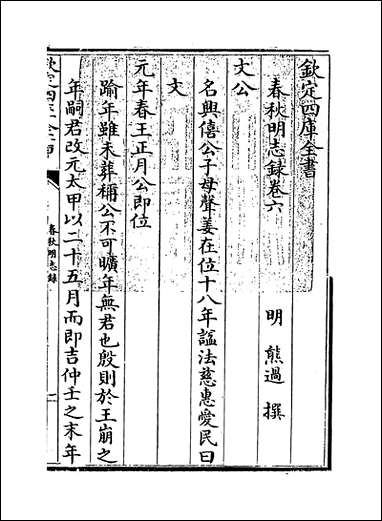 欽定四庫全書
春秋明志錄卷六
明 熊過 撰
文公
名興僖公子母聲姜在位十八年諡法慈惠愛民曰
文
元年春王正月公即位
踰年雖未葬稱公不可曠年無君也殷則於王崩之
年嗣君改元太甲以二十五月而即吉仲壬之末年
春秋明志録